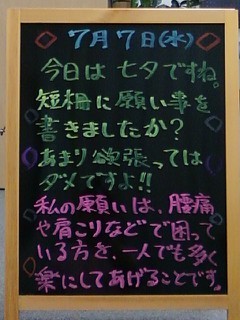 7月7日(水)
今日は七夕ですね。
短冊に願い事を
書きましたか?
あまり欲張っては
ダメですよ!!
私の願いは、腰痛
や肩こりなどで困って
いる方を、一人でも多く
楽にしてあげることです。